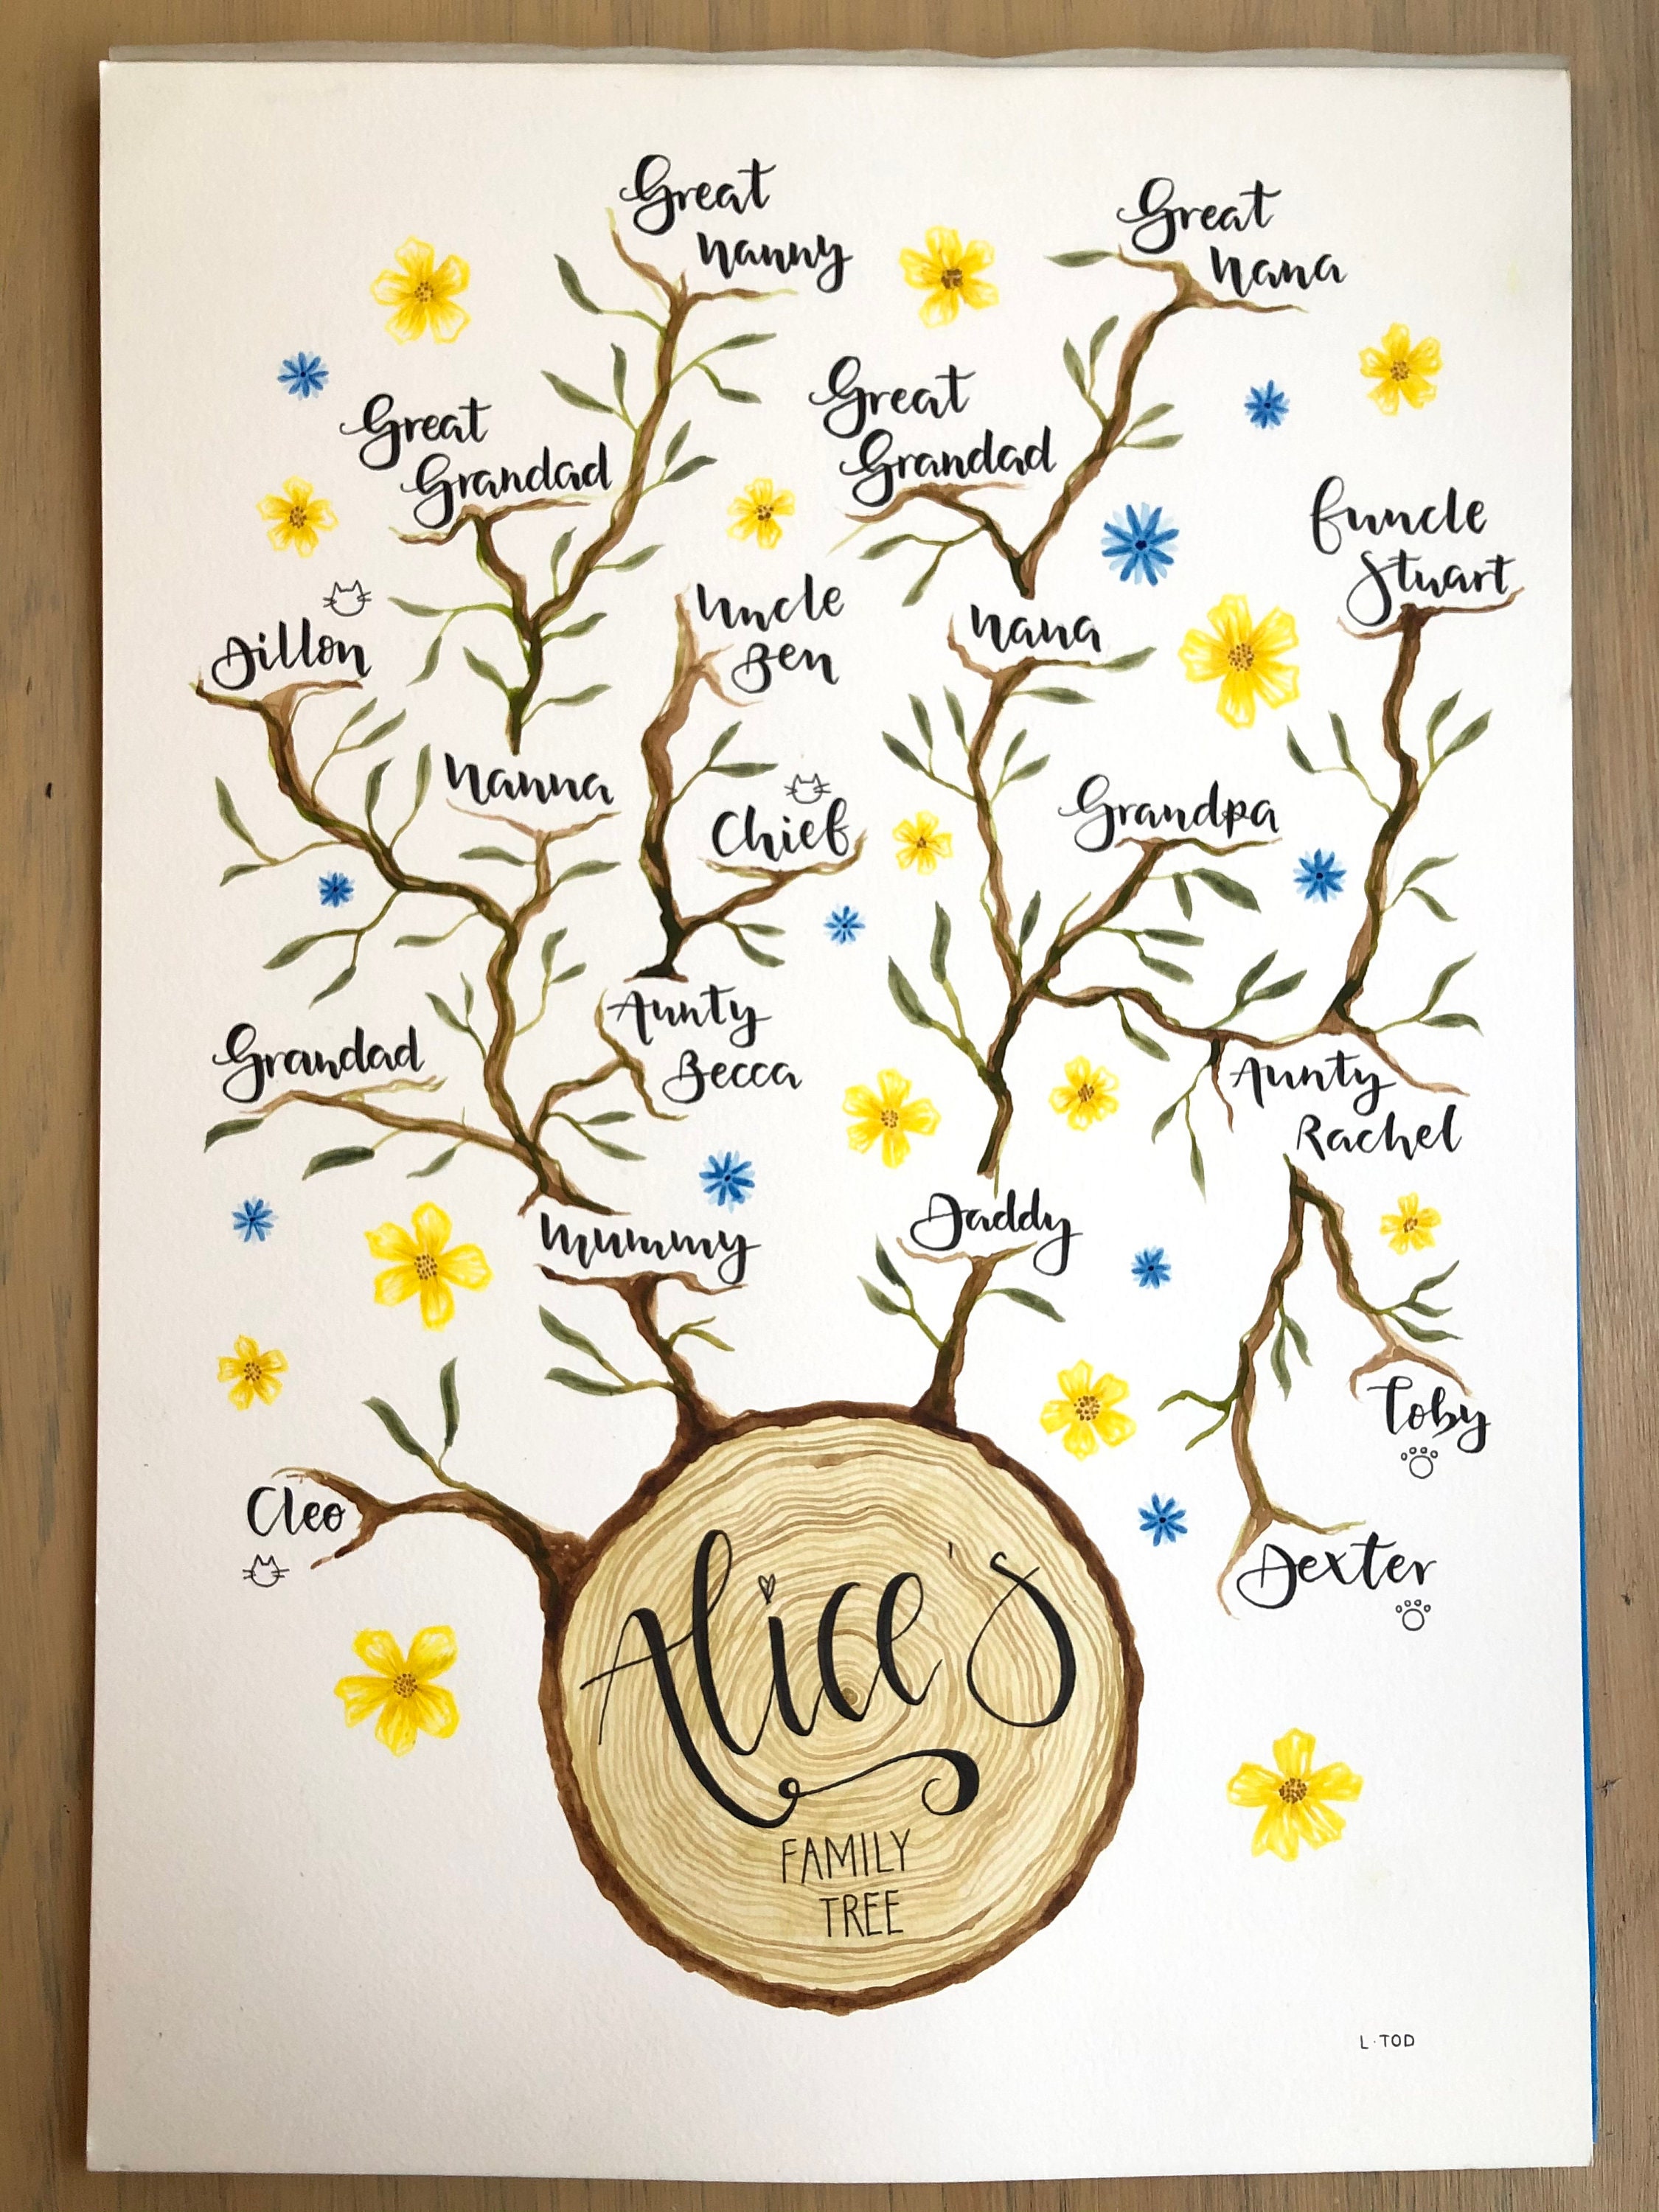 Great
Nanny
Great
Nana
Great
Grandad
Great
Grandad
Funcle
Stuart
Dillon
Uncle
Ben
Nana
Nanna
Chief
Grandpa
Grandad
Aunty
Becca
Aunty
Rachel
Mummy
Daddy
Toby
Cleo
Dexter
Alice's
FAMILY
TREE
L·TOD